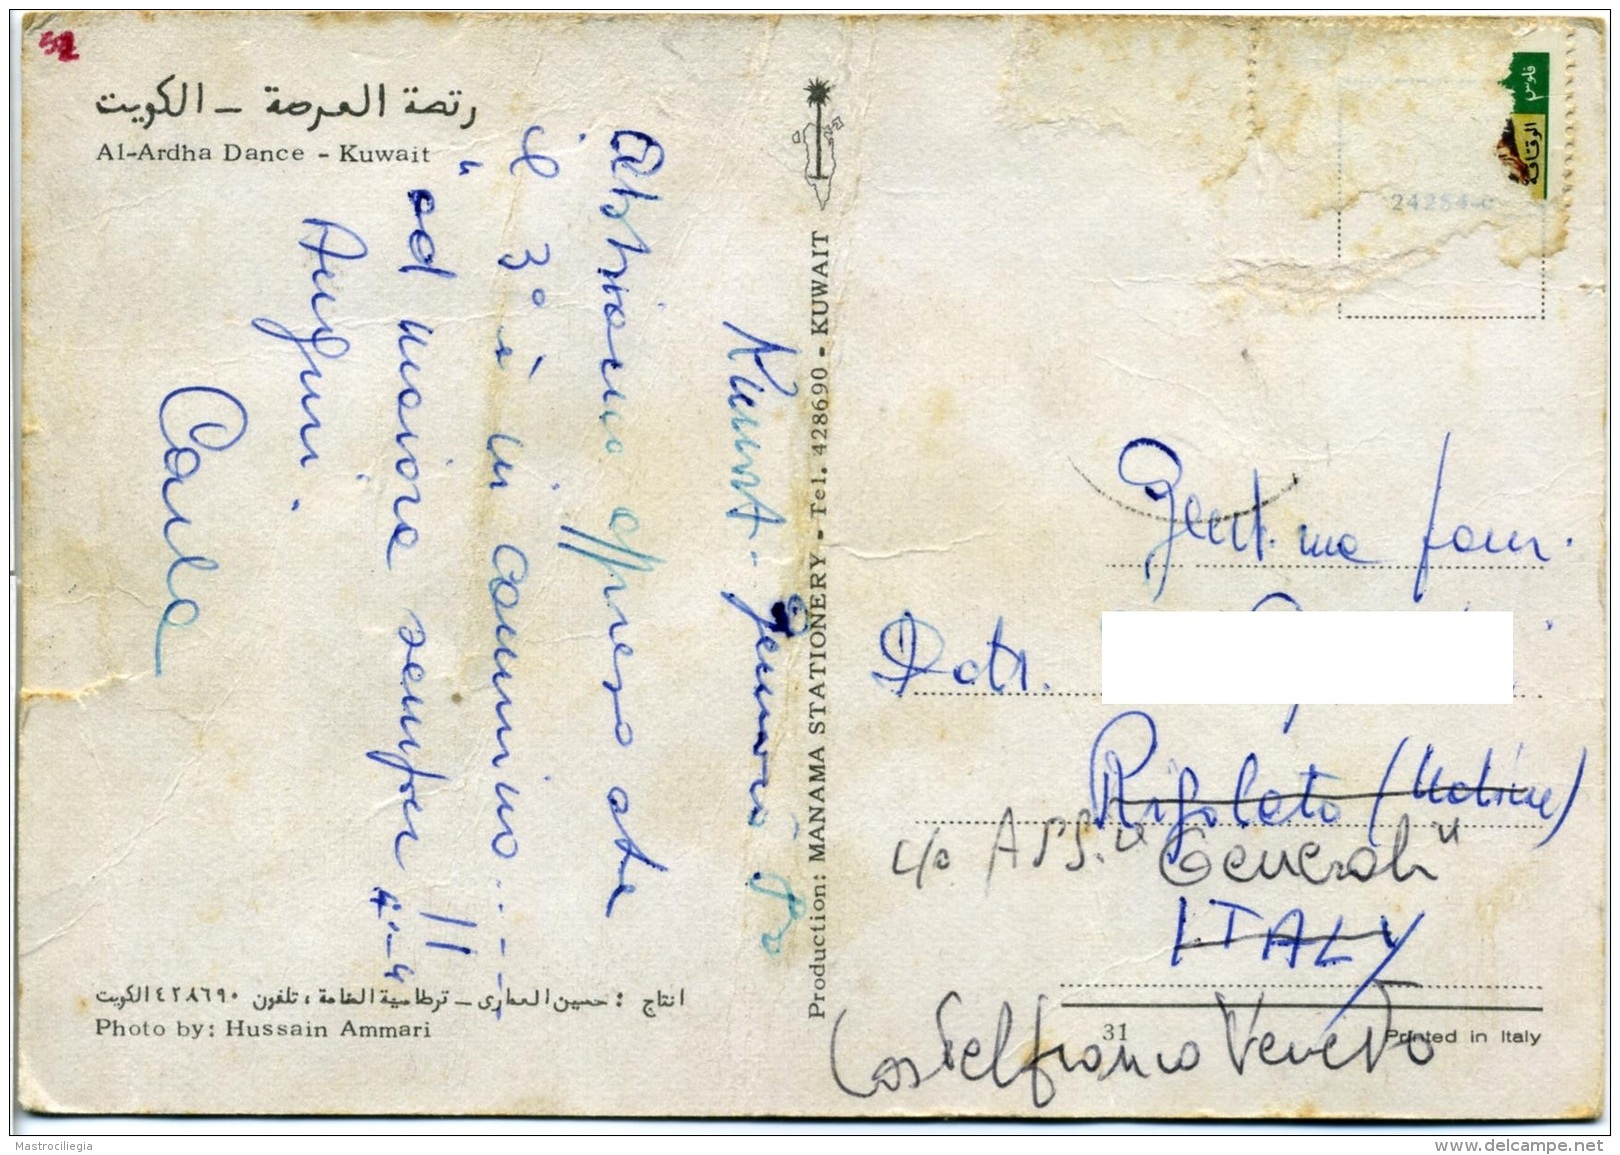 52
رقصة العرضة - الكويت
Al-Ardha Dance - Kuwait
Kuwait - Gennaio
Abbiamo appreso che
il 3° è in cammino.....
"ad maiora semper"!!
Auguri.
Carla
انتاج : حسين العماري - قرطاسية المنامة ، تلفون ٤٢٨٦٩٠ الكويت
Photo by: Hussain Ammari
Production: MANAMA STATIONERY - Tel. 428690 - KUWAIT
فلوس
24254-c
Gent.ma fam.
Dott.
Rigolato (Udine)
c/o ASS. "Generali"
ITALY
31
Printed in Italy
Castelfranco Veneto
Mastrociliegia
www.delcampe.net